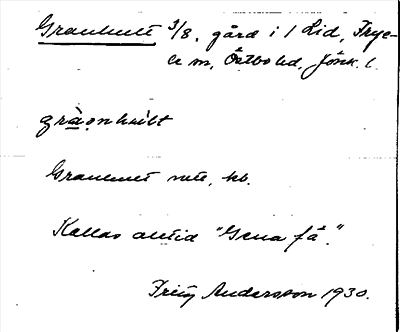 Granhult 3/8, gård i l Lid, Frye-
le sn, Östbo hd, Jönk. l.
gràₒnhưlt
Granhult mtl, kb.
Kallas alltid "Gena få".
Andersson 1930.